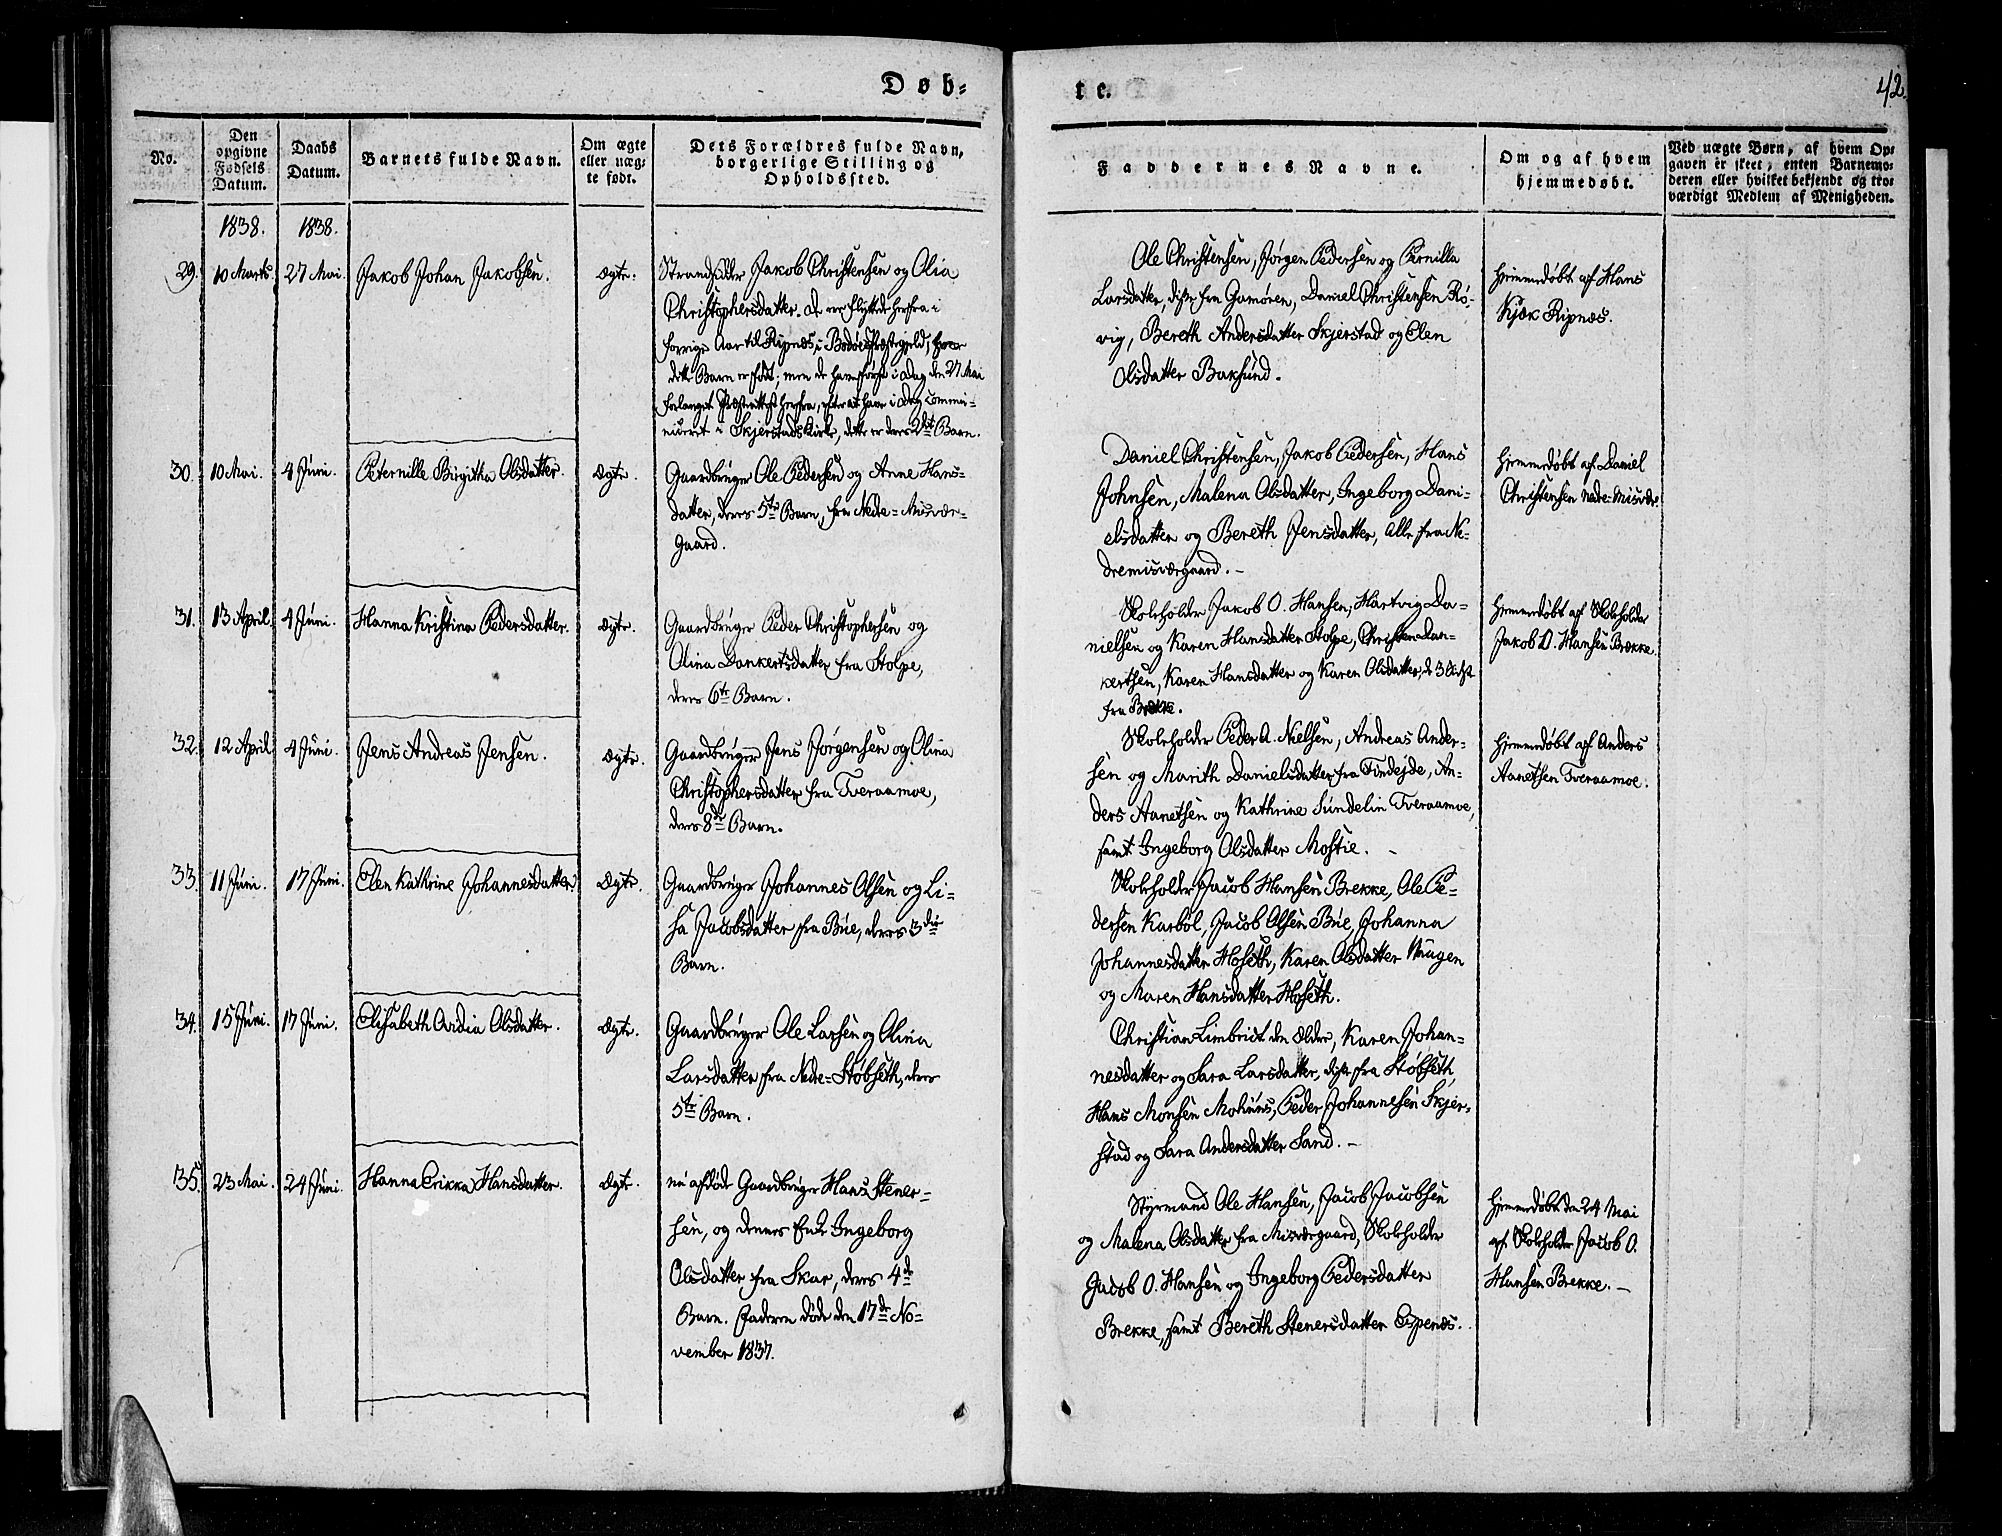 Døb-
te.
42.
No.
Den
opgivne
Fødsels
Datum.
Daabs
Datum.
Barnets fulde Navn.
Om ægte
eller uæg-
te født.
Dets Forældres fulde Navn,
borgerlige Stilling og
Opholdssted.
Faddernes Navne.
Om og af hvem
hjemmedøbt.
Ved uægte Børn, af hvem Op-
gaven er skeet, enten Barnemo-
deren eller hvilket bekjendt og tro-
værdigt Medlem af Menigheden.
1838.
1838.
29.
10 Marts.
27 Mai.
Jakob Johan Jakobsen.
Ægte.
Strandsidder Jakob Christensen og Olia
Christophersdatter. De ere flyttede herfra i
forrige Aar til Ripnæs, i Bodøe Præstegjeld, hvor
dette Barn er født; men de have først i Dag den 27 Mai
forlanget Præsteattest herfra, efter at have i Dag commu-
niceret i Skjerstads Kirke, dette er deres 2det Barn.
Ole Christensen, Jørgen Pedersen og Pernilla
Larsdatter, disse fra Gumøren, Daniel Christensen Rø-
vig, Bereth Andersdatter Skjerstad og Elen
Olsdatter Baksund.
Hjemmedøbt af Hans
Kjøk Ripnæs.
30.
10 Mai.
4 Juni.
Peternille Birgitha Olsdatter.
Ægte.
Gaardbruger Ole Pedersen og Anne Hans-
datter, deres 5te Barn, fra Nedre-Misvær-
gaard.
Daniel Christensen, Jakob Pedersen, Hans
Johnsen, Malena Olsdatter, Ingeborg Dani-
elsdatter og Bereth Jensdatter, alle fra Ne-
dremisværgaard. -
Hjemmedøbt af Daniel
Christensen Nedre-Misvær.
31.
13 April.
4 Juni.
Hanna Kristina Pedersdatter.
Ægte.
Gaardbruger Peder Christophersen og
Olina Dankertsdatter fra Stolpe,
deres 6te Barn.
Skoleholder Jakob O. Hansen, Hartvig Da-
nielsen og Karen Hansdatter Stolpe, Christen Dan-
kertsen, Karen Hansdatter og Karen Olsdatter, de 3 sidste
fra Brekke.
Hjemmedøbt af Skoleholder
Jakob O. Hansen Brekke.
32.
12 April.
4 Juni.
Jens Andreas Jensen.
Ægte.
Gaardbruger Jens Jørgensen og Olina
Christophersdatter fra Tveraamoe,
deres 8de Barn.
Skoleholder Peder A. Nielsen, Andreas Ander-
sen og Marith Danielsdatter fra Findejde, An-
ders Aanetsen og Kathrine Sundelin Tveraamoe,
samt Ingeborg Olsdatter Mostie. -
Hjemmedøbt af Anders
Aanetsen Tveraamoe.
33.
11 Juni.
17 Juni.
Elen Kathrine Johannesdatter.
Ægte.
Gaardbruger Johannes Olsen og Li-
sa Jacobsdatter fra Bue, deres 3die
Barn.
Skoleholder Jacob Hansen Brekke, Ole Pe-
dersen Karbøl, Jacob Olsen Bue, Johanna
Johannesdatter Hoseth, Karen Olsdatter Waagen
og Maren Hansdatter Hoseth.
34.
15 Juni.
17 Juni.
Elisabeth Ardia Olsdatter.
Ægte.
Gaardbruger Ole Larsen og Olina
Larsdatter fra Nedre-Støbseth, deres
5te Barn.
Christian Limbridt den Ældre, Karen Johan-
nesdatter og Sara Larsdatter, disse fra Støbseth,
Hans Monsen Mohuus, Peder Johannesen Skjer-
stad og Sara Andersdatter Sand. -
35.
23 Mai.
24 Juni.
Hanna Erikka Hansdatter.
Ægte.
nu afdøde Gaardbruger Hans Stener-
sen, og dennes Enke Ingeborg
Olsdatter fra Skar, deres 4de
Barn. Faderen døde den 17de No-
vember 1837.
Styrmand Ole Hansen, Jacob Jacobsen
og Malena Olsdatter fra Misværgaard, Skoleholder
Jacob O. Hansen og Ingeborg Pedersdatter
Brekke, samt Bereth Stenersdatter Espenæs.
Hjemmedøbt den 24 Mai
af Skoleholder Jacob O.
Hansen Brekke. -